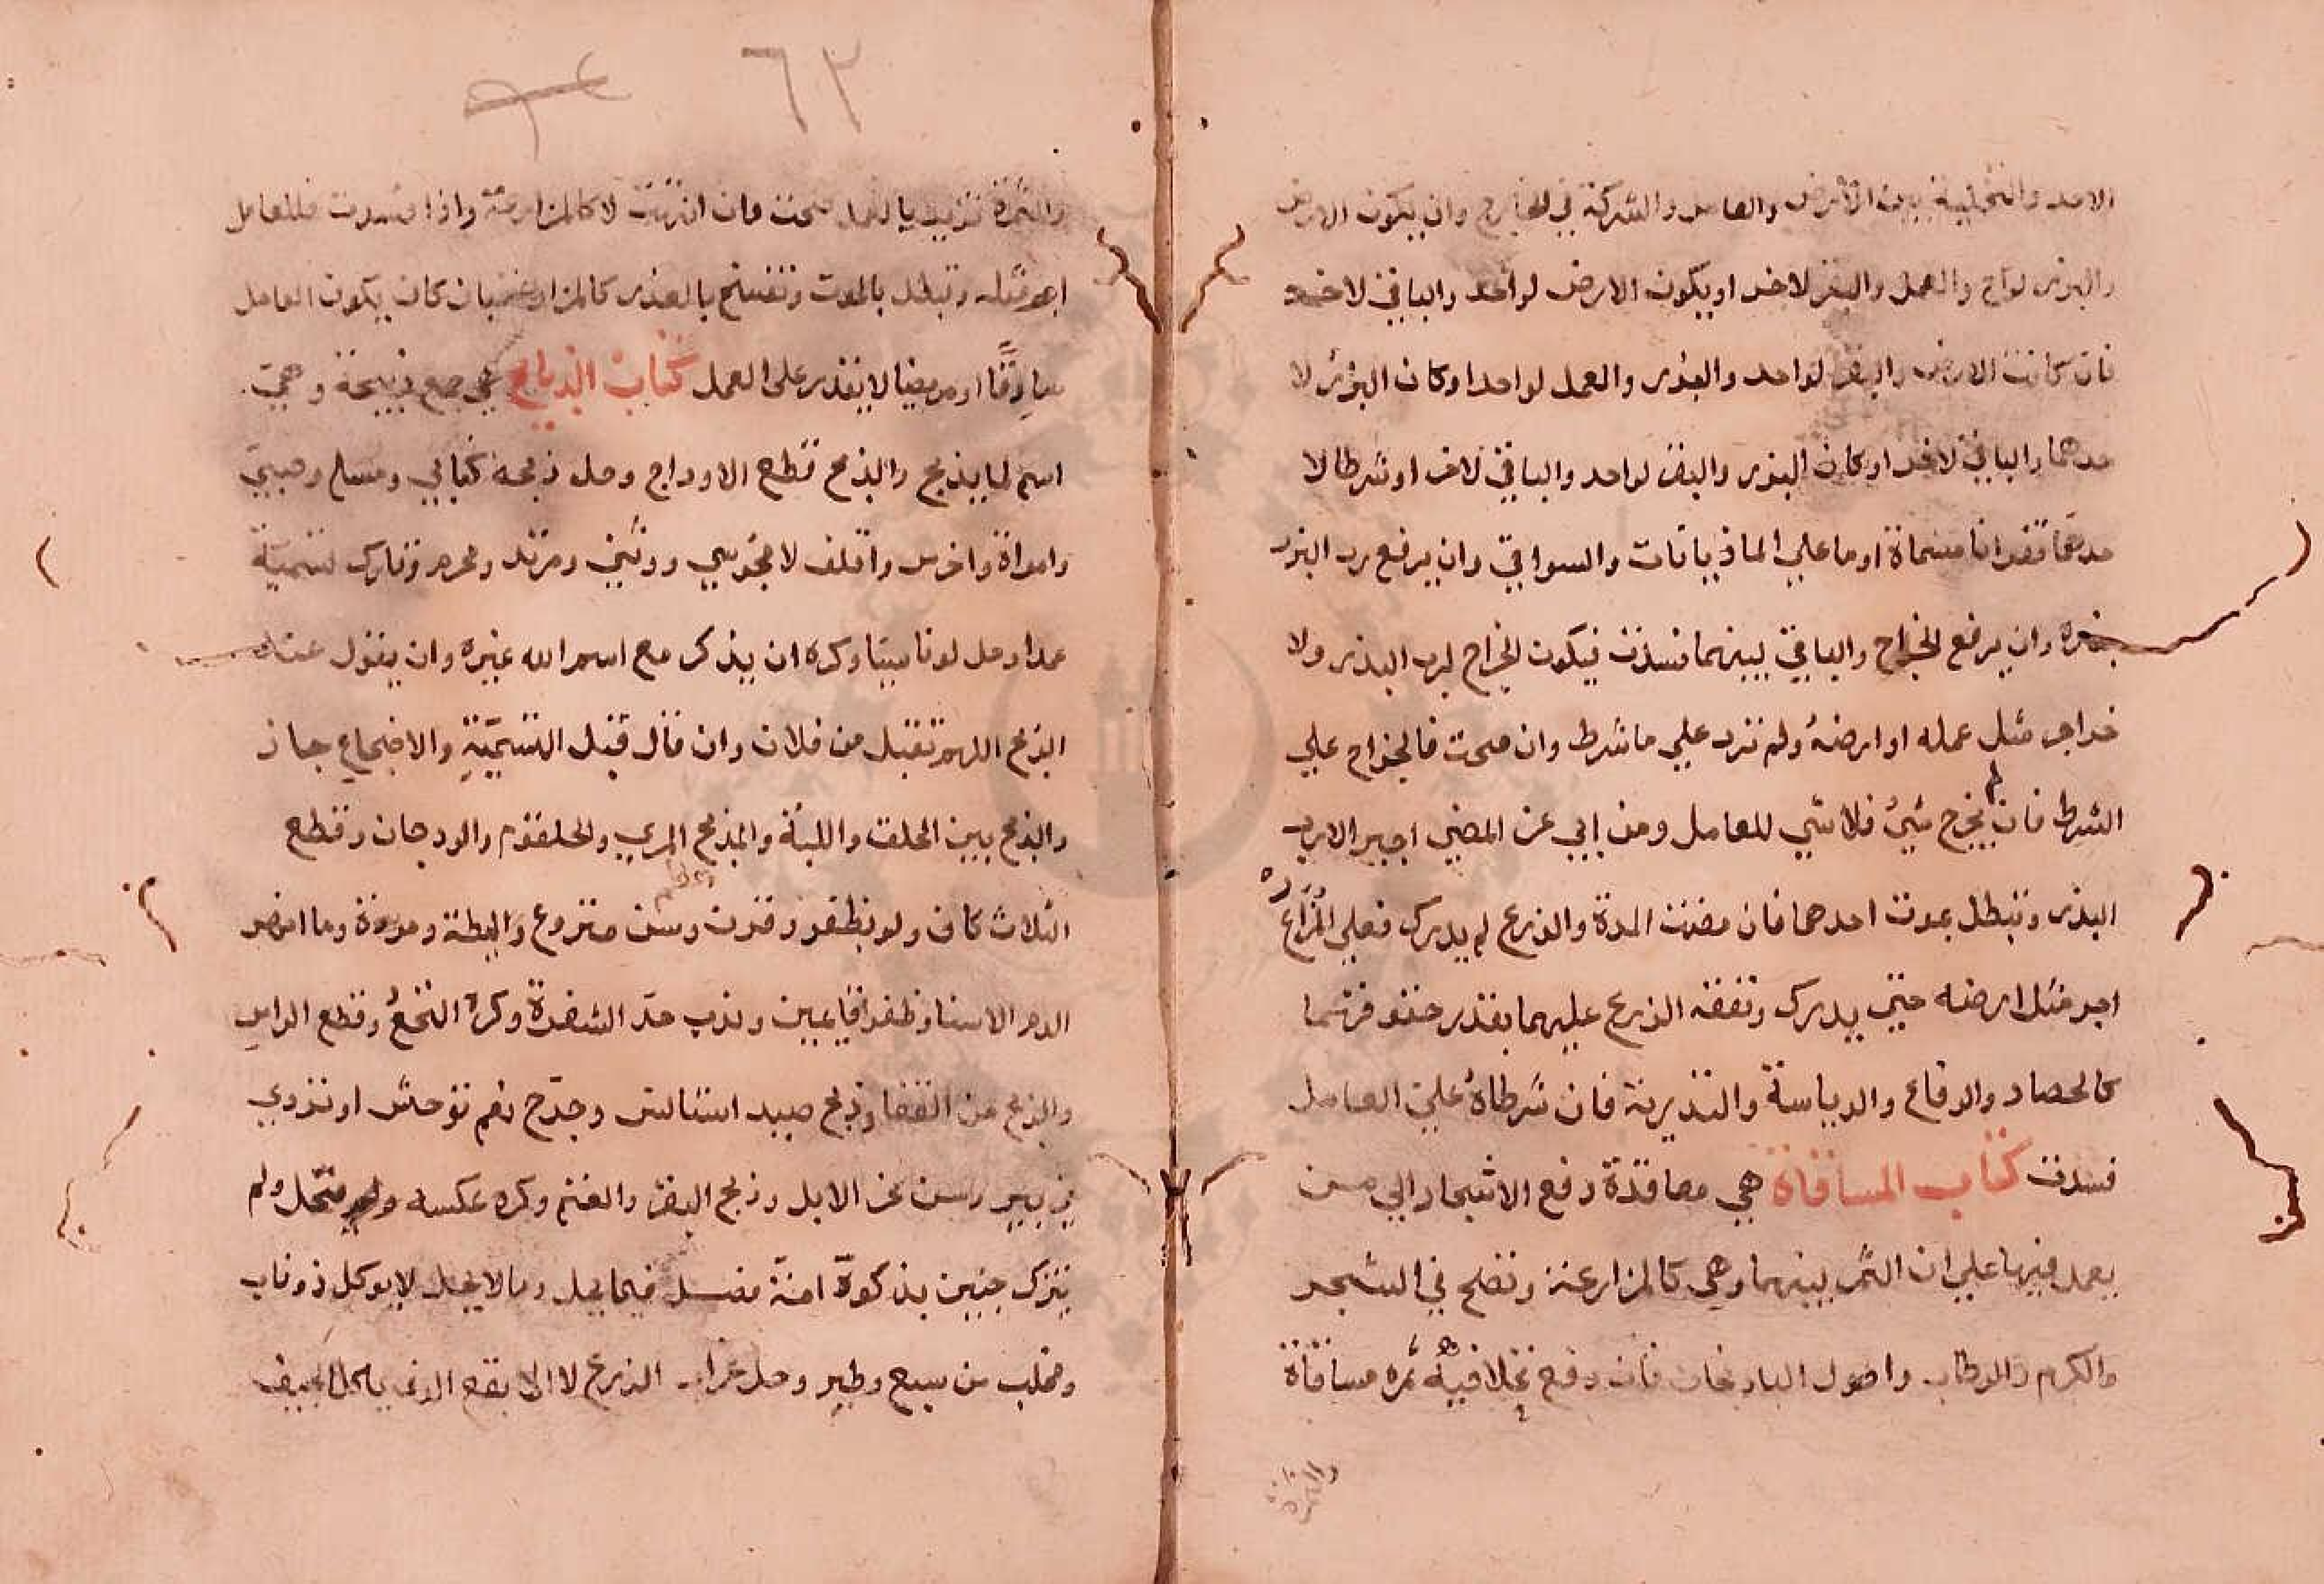 الاخر والتخلية بين الارض والعامل والشركة في الخارج وان يكون الارض
والبذر لواحد والعمل والبقر لاخر او يكون الارض لواحد والباقي لاخر
فان كانت الارض والبقر لواحد والبذر والعمل لواحد او كان البذر لا
حدهما والباقي لاخر او كان البذر والبقر لواحد والباقي لاخر او شرطا لا
حدهما قفزانا مسماة او ما علي الماذيانات والسواقي وان يرفع رب البذر
بذره وان يرفع الخراج والباقي بينهما فسدت فيكون الخراج لرب البذر ولا
خراجر مثل عمله او ارضه ولم تزد علي ما شرط وان صحت فالخراج علي
الشرط فان لم يخرج شيئ فلا شي للعامل ومن ابي عن المضي اجبر الا رب
البذر وتبطل بموت احدهما فان مضت المدة والزرع لم يدرك فعلي المزارع
اجر مثل ارضه حتي يدرك ونفقة الزرع عليهما بقدر حقوقهما
كالحصاد والرفاع والدياسة والتذرية فان شرطاه علي العامل
فسدت كتاب المساقاة هي معاقدة دفع الاشجار الي من
يعمل فيها علي ان الثمر بينهما وهي كالمزارعة وتصح في الشجر
والكرم والرطاب واصول الباذنجان فان دفع نخلا فيه ثمره مساقاة
والثمرة
٦٢
والثمرة تزيد بالعمل صحت وان انتهت لا كالمزارعة واذا فسدت فللعامل
اجر مثله وتبطل بالموت وتفسخ بالعذر كالمزارعة بان كان يكون العامل
سارقا او مريضا لا يقدر علي العمل كتاب الذبايح هي جمع ذبيحة وهي
اسم لما يذبح والذبح قطع الاوداج وحل ذبحة كتابي ومسلم وصبي
وامراة واخرس واقلف لا مجوسي ووثني ومرتد ومحرم وتارك تسمية
عمدا وحل لو ناسيا وكره ان يذكر مع اسم الله غيره وان يقول عند
الذبح اللهم تقبل من فلان وان قال قبل التسمية والاضجاع جاز
والذبح بين الحلق واللبة والمذبح المري والحلقوم والودجان وقطع
الثلاث كاف ولو بظفر وقرن وسن منزوع والبطة ومروة وما انهر
الدم الا سنا وظفرا قايمين وندب حد الشفرة وكره النخع وقطع الراس
والذبح من القفا وذبح صيد استانس وجرح نعم توحش او تردي
في بير وسن نحر الابل وذبح البقر والغنم وكره عكسه وحل ولم
يتزك جنين بذكوة امه فصل فيما يحل وما لا يحل لا يوكل ذو ناب
ومخلب من سبع وطير وحل غراب الزرع لا الابقع الذي ياكل الجيف